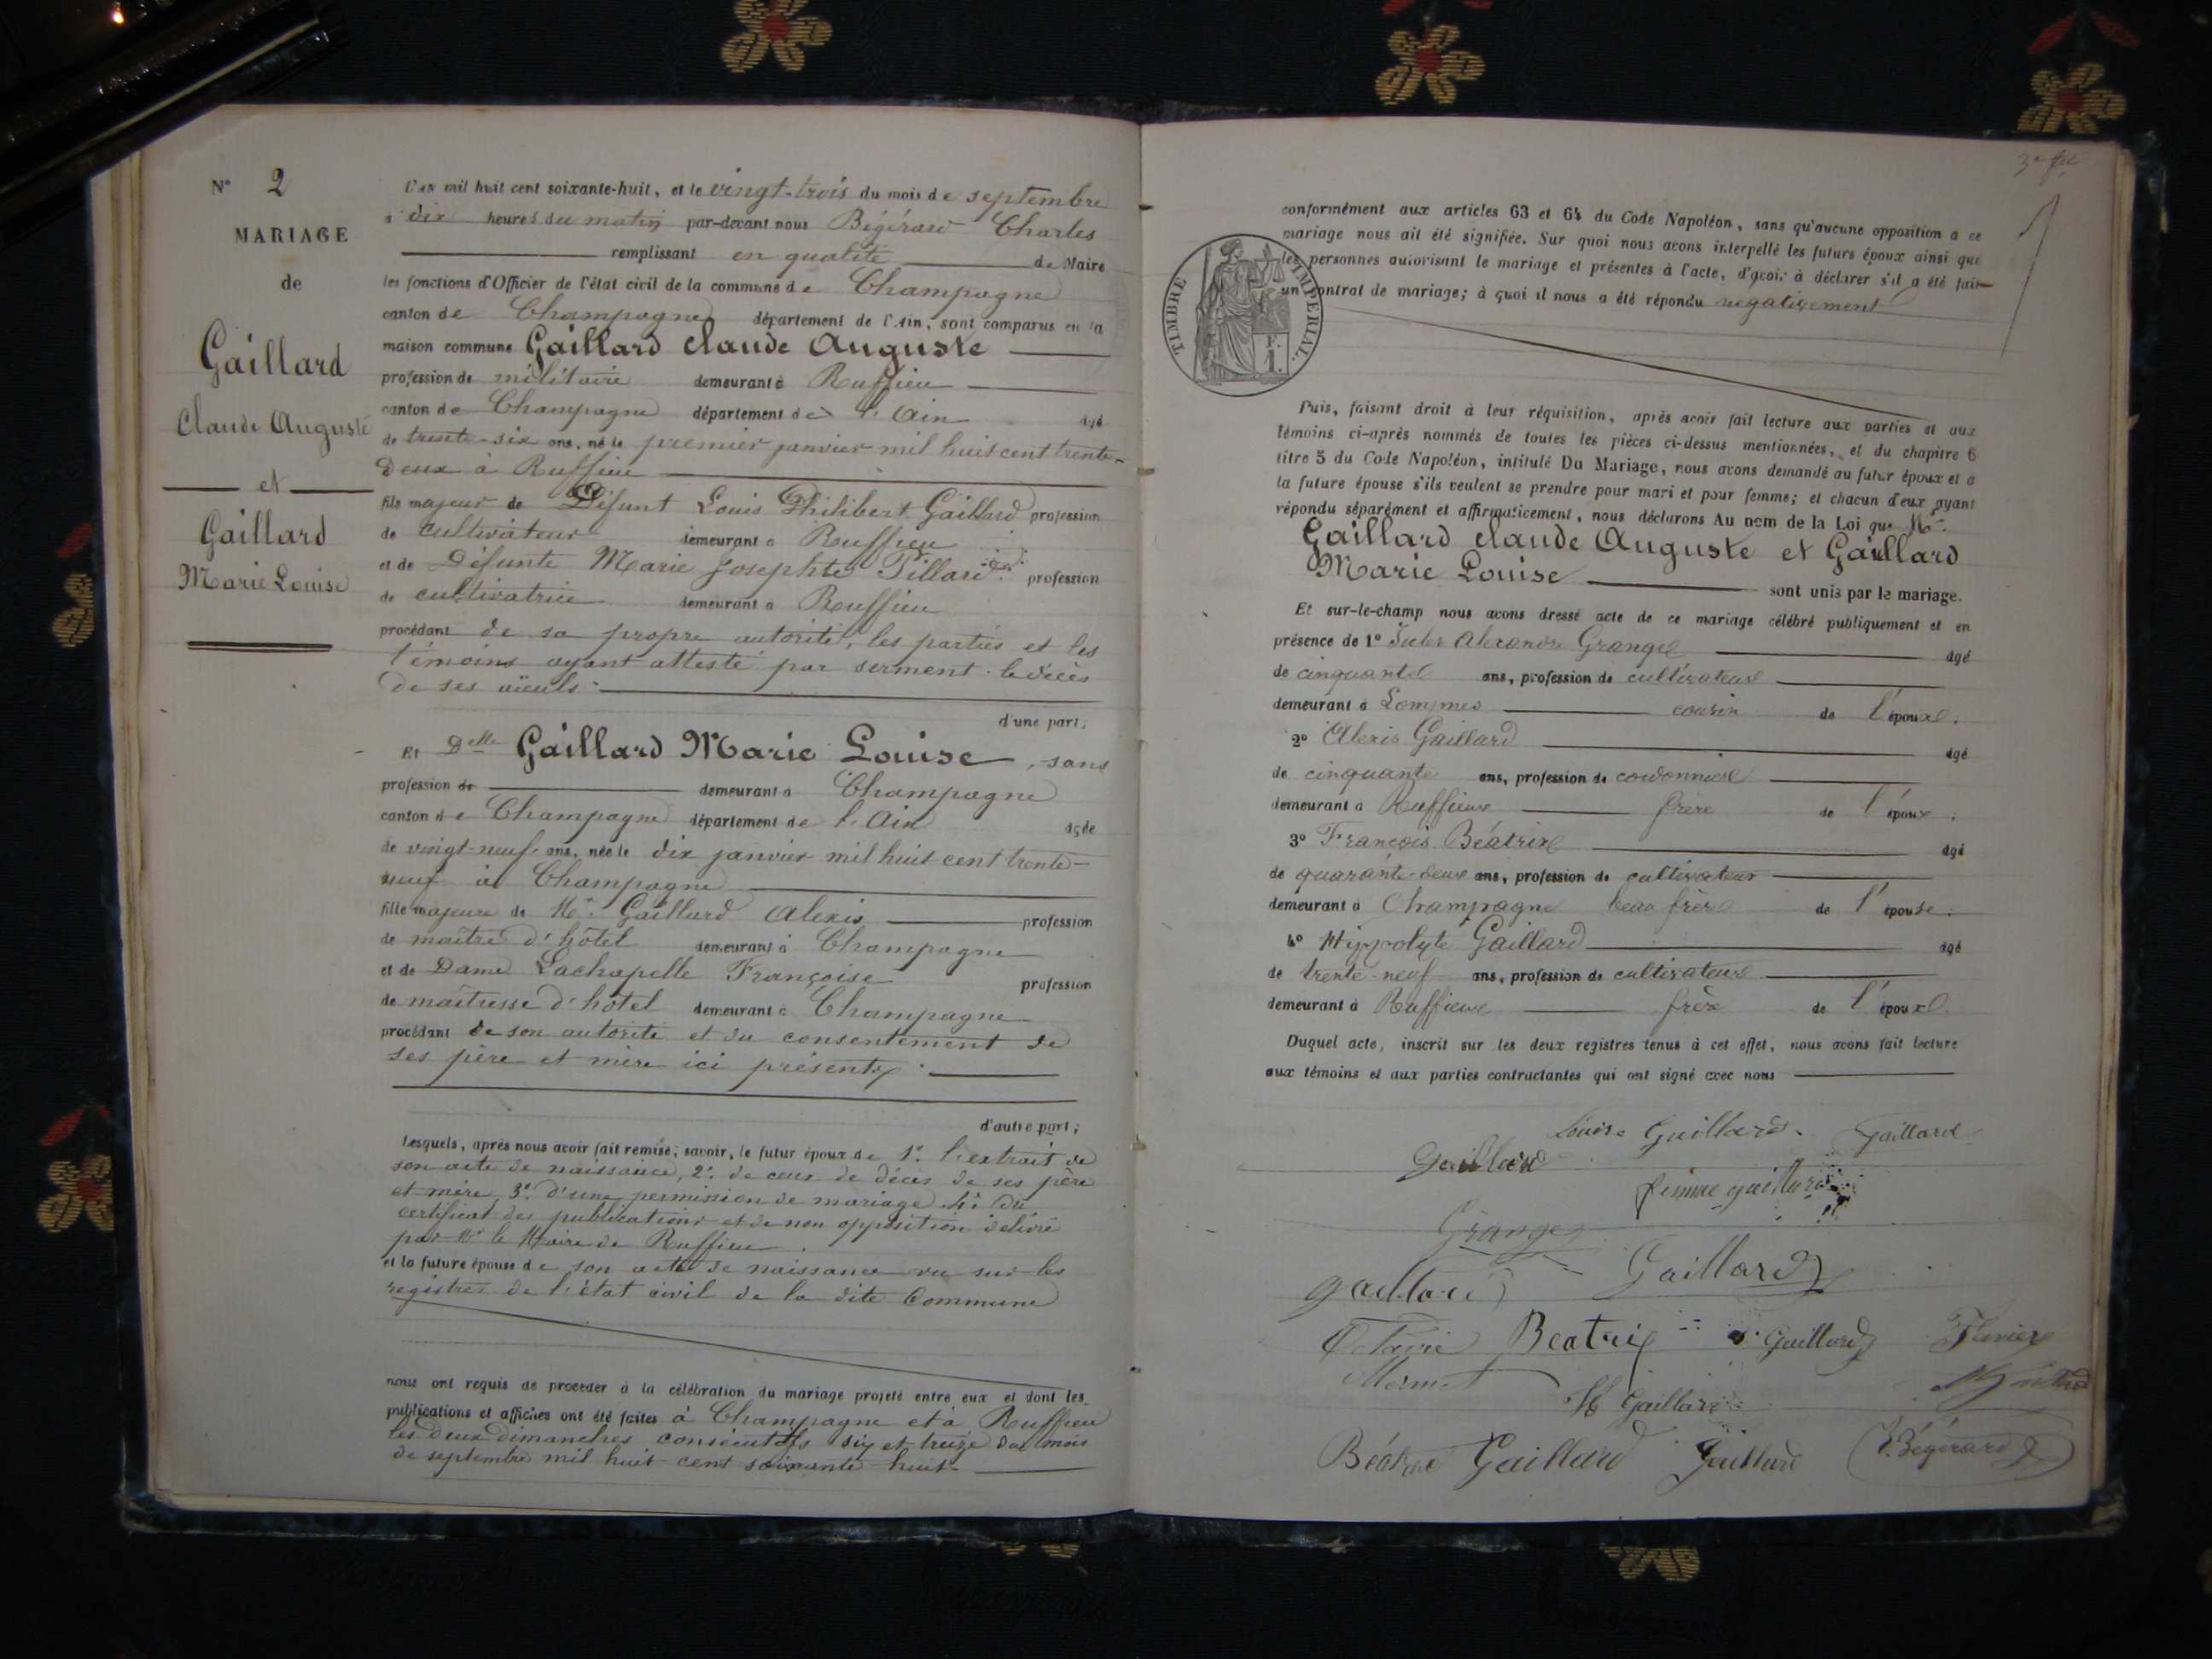 N° 2
MARIAGE
de
Gaillard
Claude Auguste
et
Gaillard
Marie Louise
L'an mil huit cent soixante-huit, et le vingt-trois du mois de septembre
à dix heures du matin par-devant nous Bégérard Charles
remplissant en qualité de Maire
les fonctions d'Officier de l'état civil de la commune de Champagne
canton de Champagne département de l'Ain, sont comparus en la
maison commune Gaillard Claude Auguste
profession de militaire demeurant à Ruffieu
canton de Champagne département de l'Ain âgé
de trente-six ans, né le premier janvier mil huit cent trente-
deux à Ruffieu
fils majeur de Défunt Louis Philibert Gaillard profession
de cultivateur demeurant à Ruffieu
et de Défunte Marie Josephte Pillard profession
de cultivatrice demeurant à Ruffieu
procédant de sa propre autorité, les parties et les
témoins ayant attesté par serment le décès
de ses aïeuls
d'une part;
Et Delle Gaillard Marie Louise, sans
profession de demeurant à Champagne
canton de Champagne département de l'Ain âgée
de vingt-neuf ans, née le dix janvier mil huit cent trente-
neuf à Champagne
fille majeure de Mr Gaillard Alexis profession
de maître d'hôtel demeurant à Champagne
et de Dame Lachapelle Françoise profession
de maîtresse d'hôtel demeurant à Champagne
procédant de son autorité et du consentement de
ses père et mère ici présents
d'autre part;
Lesquels, après nous avoir fait remise; savoir, le futur époux de 1° l'extrait de
son acte de naissance, 2° de ceux de décès de ses père
et mère, 3° d'une permission de mariage 4° du
certificat des publications et de non opposition délivré
par Mr le Maire de Ruffieu
et la future épouse de son acte de naissance vu sur les
registres de l'état civil de la dite Commune
nous ont requis de procéder à la célébration du mariage projeté entre eux et dont les
publications et affiches ont été faites à Champagne et à Ruffieu
les deux dimanches consécutifs six et treize du mois
de septembre mil huit cent soixante-huit
conformément aux articles 63 et 64 du Code Napoléon, sans qu'aucune opposition à ce
mariage nous ait été signifiée. Sur quoi nous avons interpellé les futurs époux ainsi que
les personnes autorisant le mariage et présentes à l'acte, d'avoir à déclarer s'il a été fait
un contrat de mariage; à quoi il nous a été répondu négativement
TIMBRE IMPERIAL.
F.
1.
Puis, faisant droit à leur réquisition, après avoir fait lecture aux parties et aux
témoins ci-après nommés de toutes les pièces ci-dessus mentionnées, et du chapitre 6
titre 5 du Code Napoléon, intitulé Du Mariage, nous avons demandé au futur époux et à
la future épouse s'ils veulent se prendre pour mari et pour femme; et chacun d'eux ayant
répondu séparément et affirmativement, nous déclarons Au nom de la Loi que Mr
Gaillard Claude Auguste et Gaillard
Marie Louise sont unis par le mariage.
Et sur-le-champ nous avons dressé acte de ce mariage célébré publiquement et en
présence de 1° Jules Alexandre Grange âgé
de cinquante ans, profession de cultivateur
demeurant à cousin de l'époux.
2° Alexis Gaillard âgé
de cinquante ans, profession de cordonnier
demeurant à Ruffieux frère de l'époux.
3° François Béatrix âgé
de quarante-deux ans, profession de cultivateur
demeurant à Champagne beau frère de l'épouse.
4° Hippolyte Gaillard âgé
de trente-neuf ans, profession de cultivateur
demeurant à Ruffieux frère de l'époux.
Duquel acte, inscrit sur les deux registres tenus à cet effet, nous avons fait lecture
aux témoins et aux parties contractantes qui ont signé avec nous
Louise Gaillard Gaillard
Gaillard
femme gaillard
Grange
gaillard Gaillard
Octavie Beatrix Gaillard
Mermet
H Gaillard
Béatrix Gaillard Gaillard Bégérard